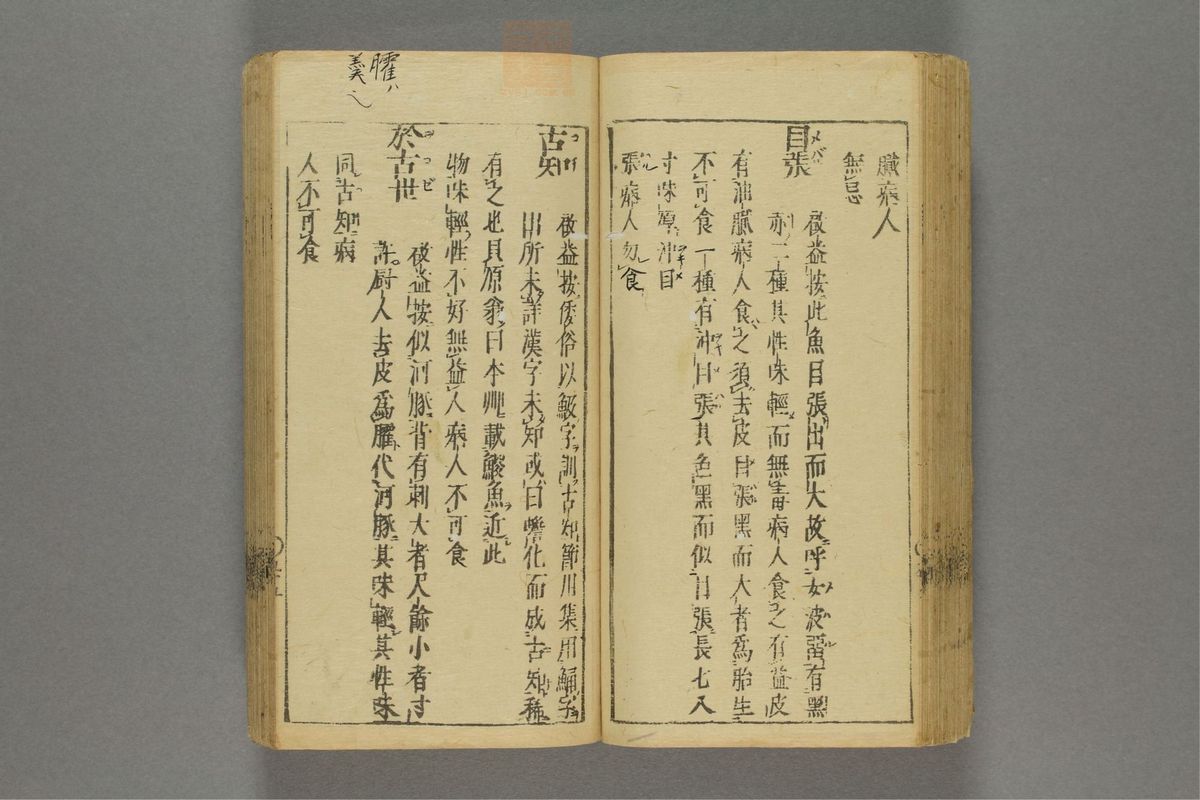 臓病人
無忌
目張
啟益按此魚目張出而大故呼女波留有黑
赤二種其性味輕而無毒病人食之有益皮
有油臓病人食之須去皮目張黑而大者為胎生
不可食一種有沖目張其色黑而似目張長七八
寸味厚沖目
張病人勿食
古知
啟益按倭俗以鮍字訓古知節用集用鯒字
出所未詳漢字未知或曰蟾化而成古知稀
有之也貝原翁曰本艸載鰘魚近此
物味輕性不好無益人病人不可食
於古世
啟益按似河豚背有刺大者尺餘小者寸
許厨人去皮為臛代河豚其味輕其性味
同古知病
人不可食
臛ハ
羹也